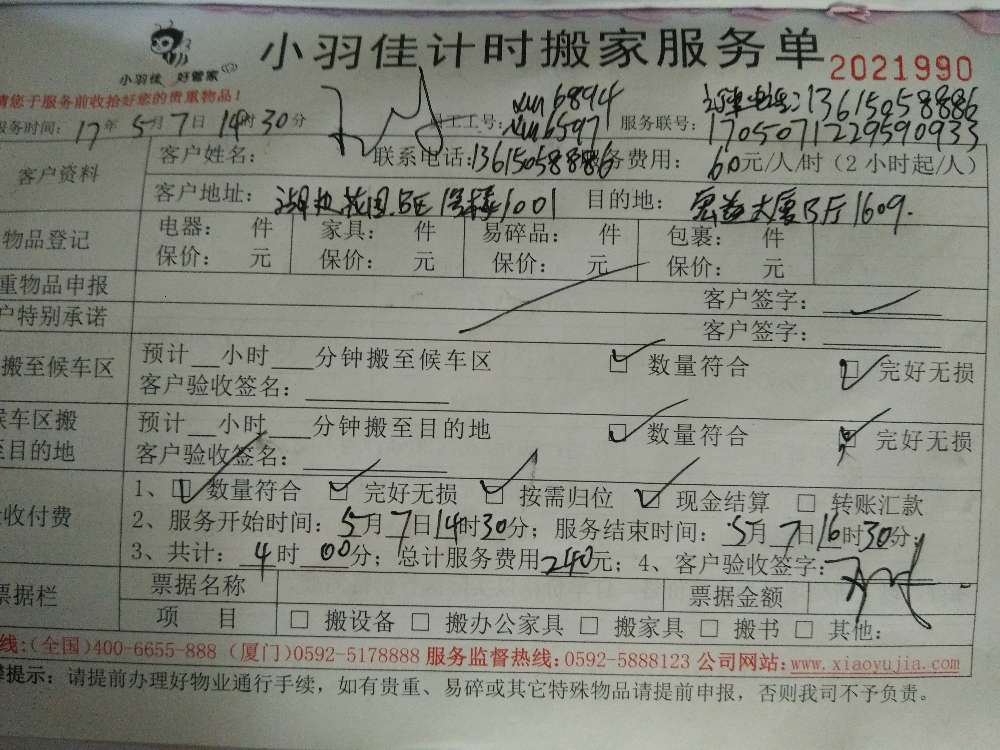 小羽佳 好管家
小羽佳计时搬家服务单 2021990
请您于服务前收拾好您的贵重物品！
服务时间：17年5月7日14时30分 员工工号：xm6894 xm6597 服务联号：1705071229590933
13615058886
客户资料 客户姓名： 联系电话：13615058886 服务费用：60元/人/时（2小时起/人）
客户地址： 1001 目的地： 大厦B厅1609.
物品登记 电器： 件 家具： 件 易碎品： 件 包裹： 件
保价： 元 保价： 元 保价： 元 保价： 元
重物品申报 客户签字：
户特别承诺 客户签字：
搬至候车区 预计__小时___分钟搬至候车区 ☑ 数量符合 ☑ 完好无损
客户验收签名：
候车区搬至目的地 预计__小时___分钟搬至目的地 ☑ 数量符合 ☑ 完好无损
客户验收签名：
验收付费 1、☑ 数量符合 ☑ 完好无损 ☑ 按需归位 ☑ 现金结算 □ 转账汇款
2、服务开始时间：5月7日14时30分；服务结束时间：5月7日16时30分；
3、共计：4时00分；总计服务费用240元；4、客户验收签字：
票据栏 票据名称 票据金额
项 目 □ 搬设备 □ 搬办公家具 □ 搬家具 □ 搬书 □ 其他：
线：(全国)400-6655-888 (厦门)0592-5178888 服务监督热线：0592-5888123 公司网站：www.xiaoyujia.com
提示：请提前办理好物业通行手续，如有贵重、易碎或其它特殊物品请提前申报，否则我司不予负责。